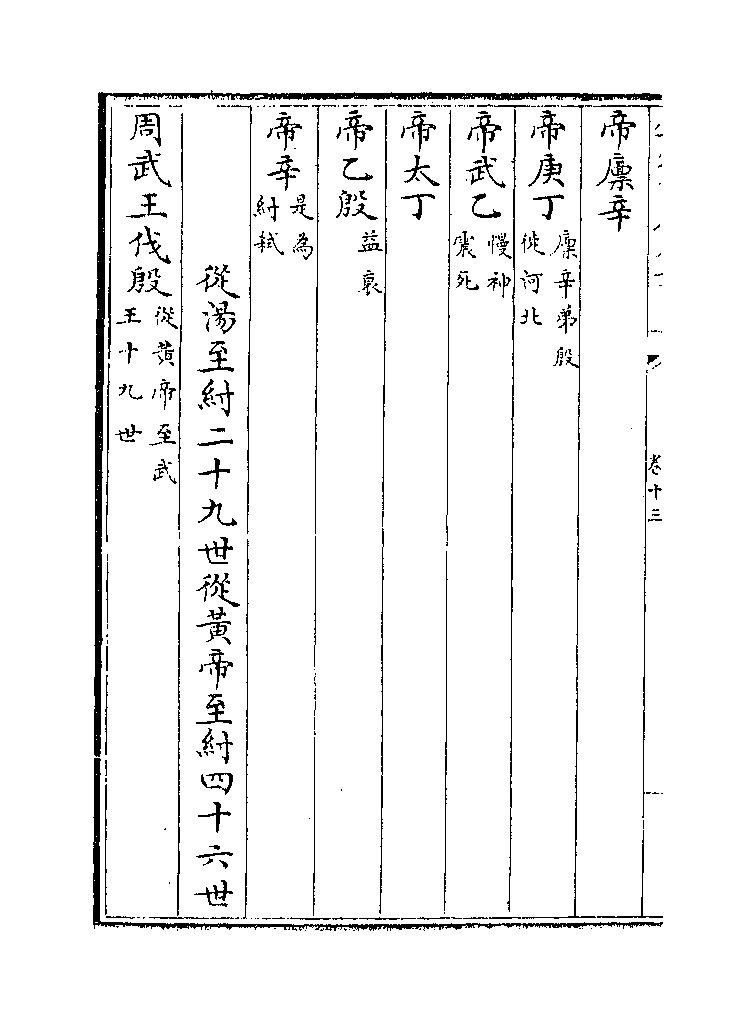 帝廪辛
帝庚丁廩辛弟殷徙河北
帝武乙慢神震死
帝太丁
帝乙殷益衰
帝辛是為紂弑
從湯至紂二十九世從黃帝至紂四十六世
周武王伐殷從黃帝至武王十九世
卷十三